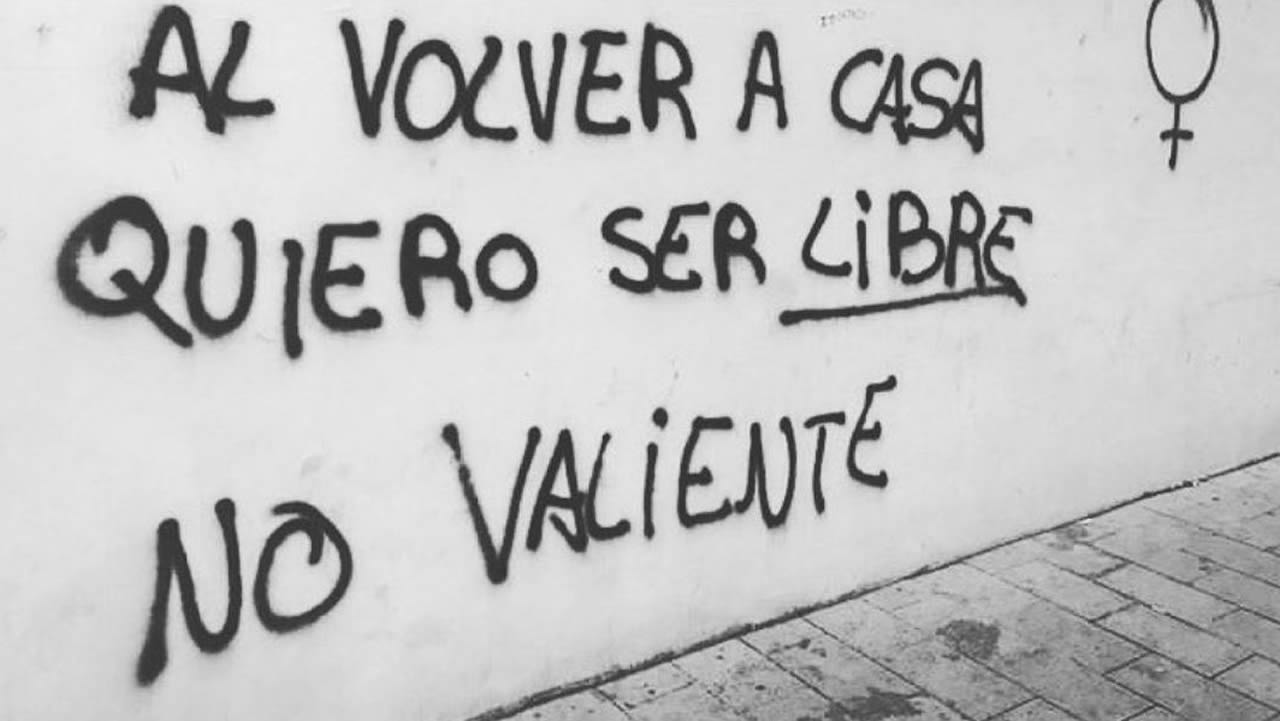 AL VOLVER A CASA
QUIERO SER LiBRE
NO VALiENTE